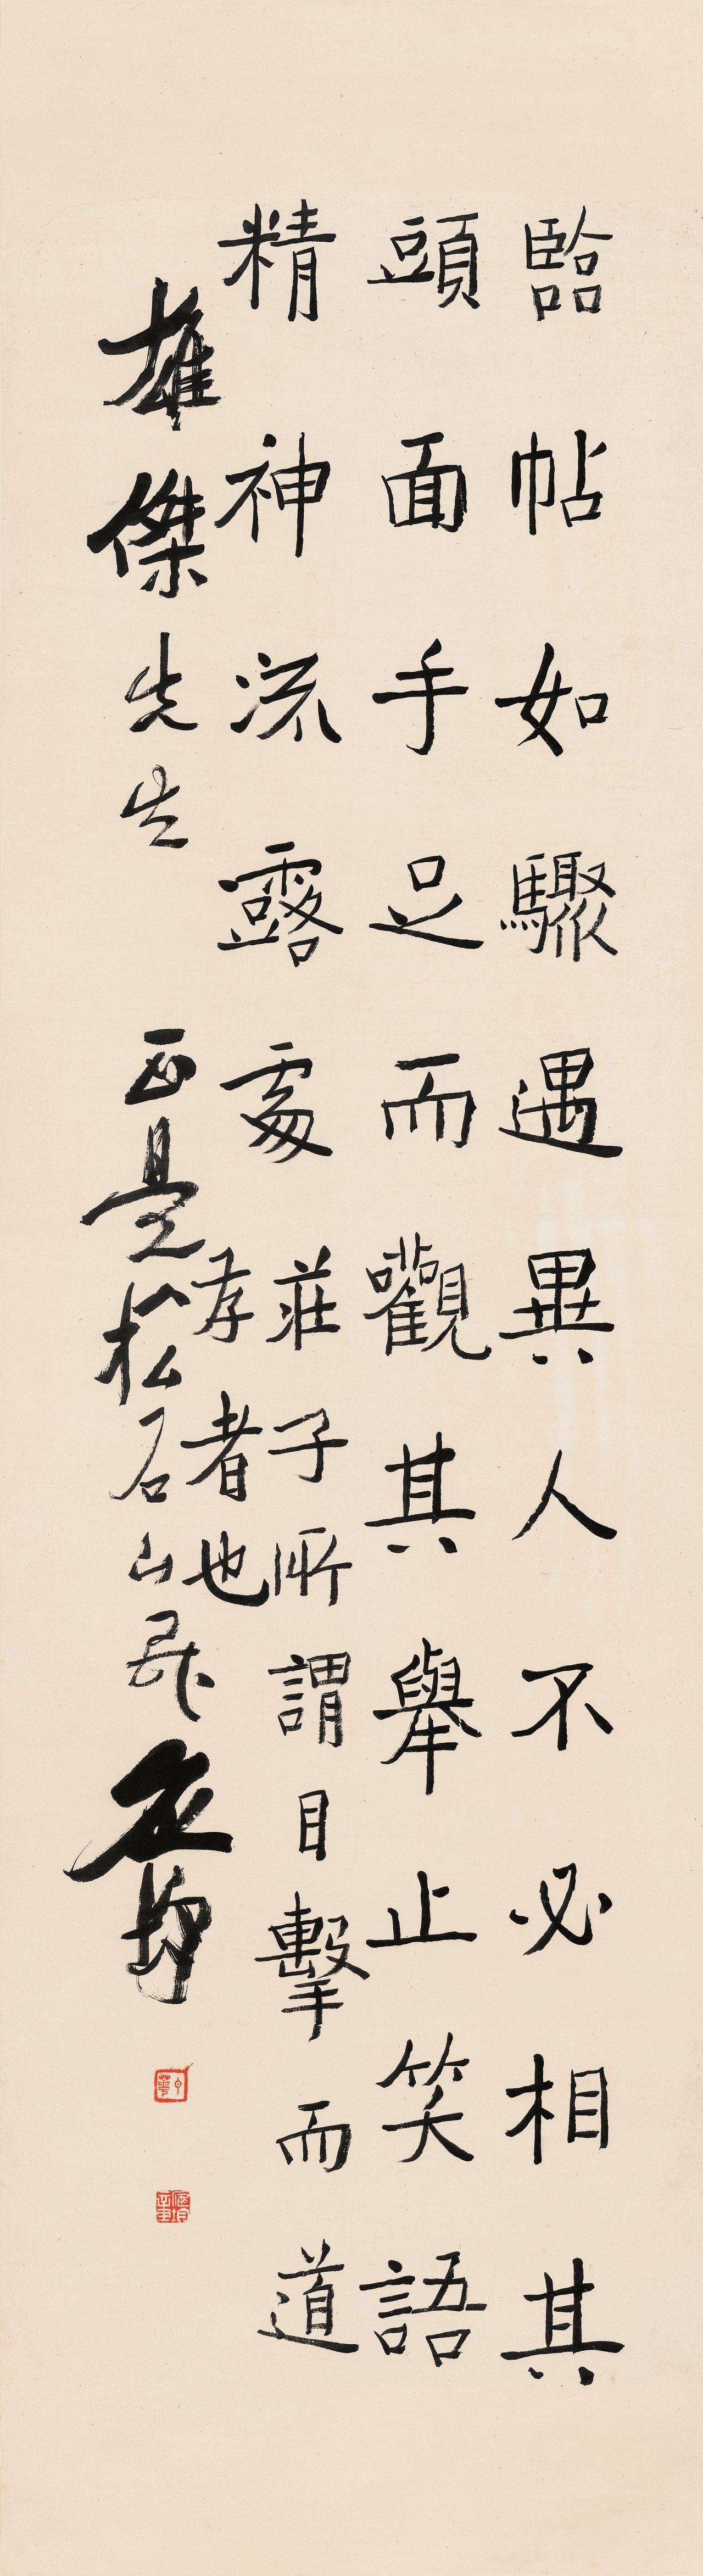 臨帖如驟遇異人不必相其
頭面手足而觀其舉止笑語
精神流露處莊子所謂目擊而道
存者也
雄傑先生 正是 松石山民